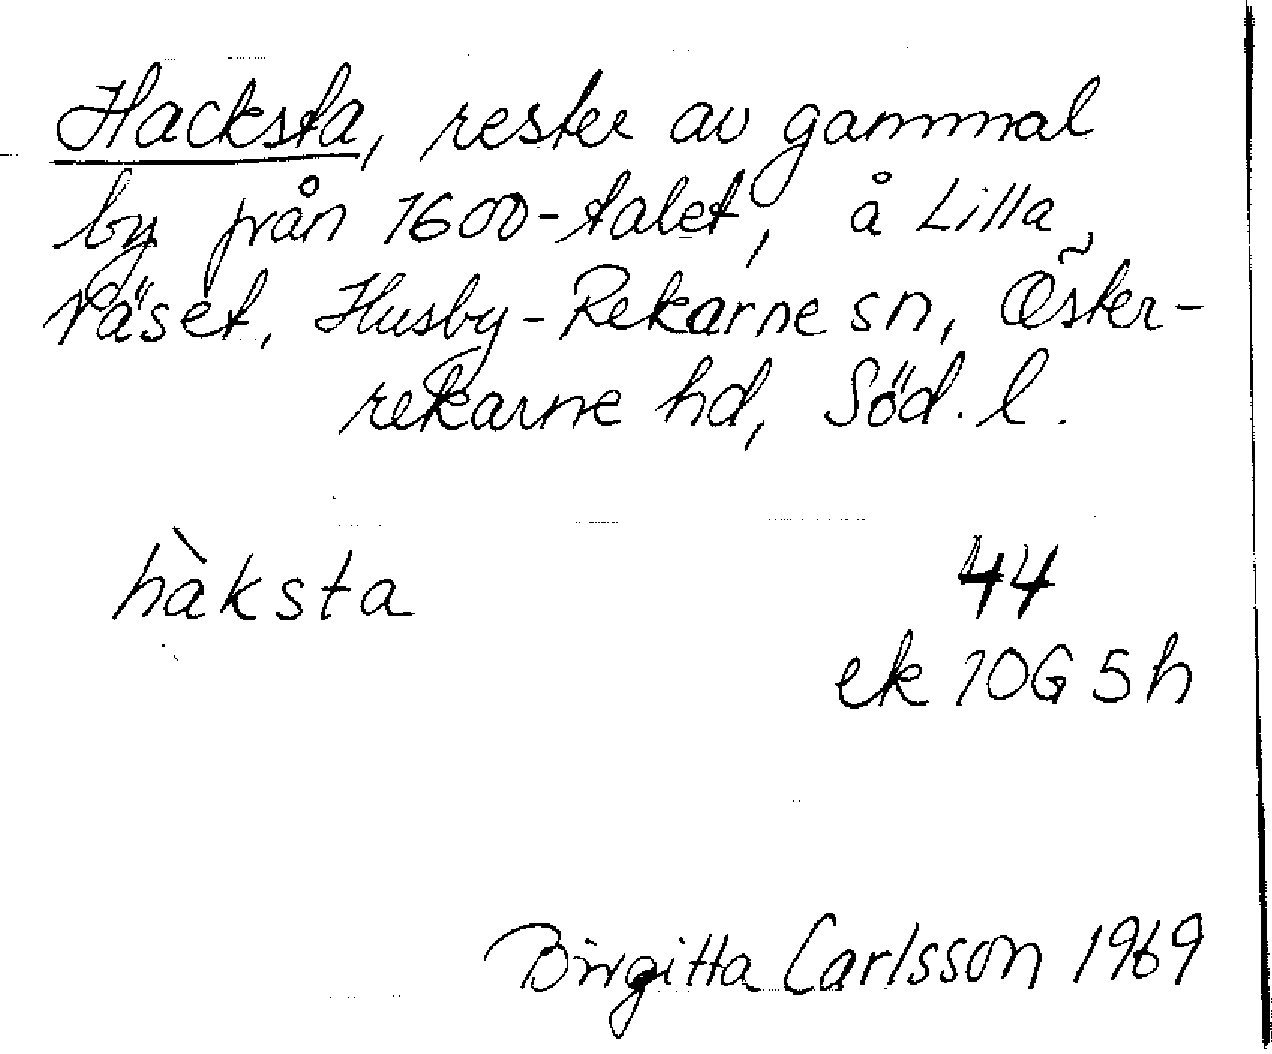 Hacksta, rester av gammal
by från 1600-talet, å Lilla
Väset, Husby-Rekarne sn, Öster-
rekarne hd, Söd. l.
hàksta 44
ek 10G 5h
Birgitta Carlsson 1969